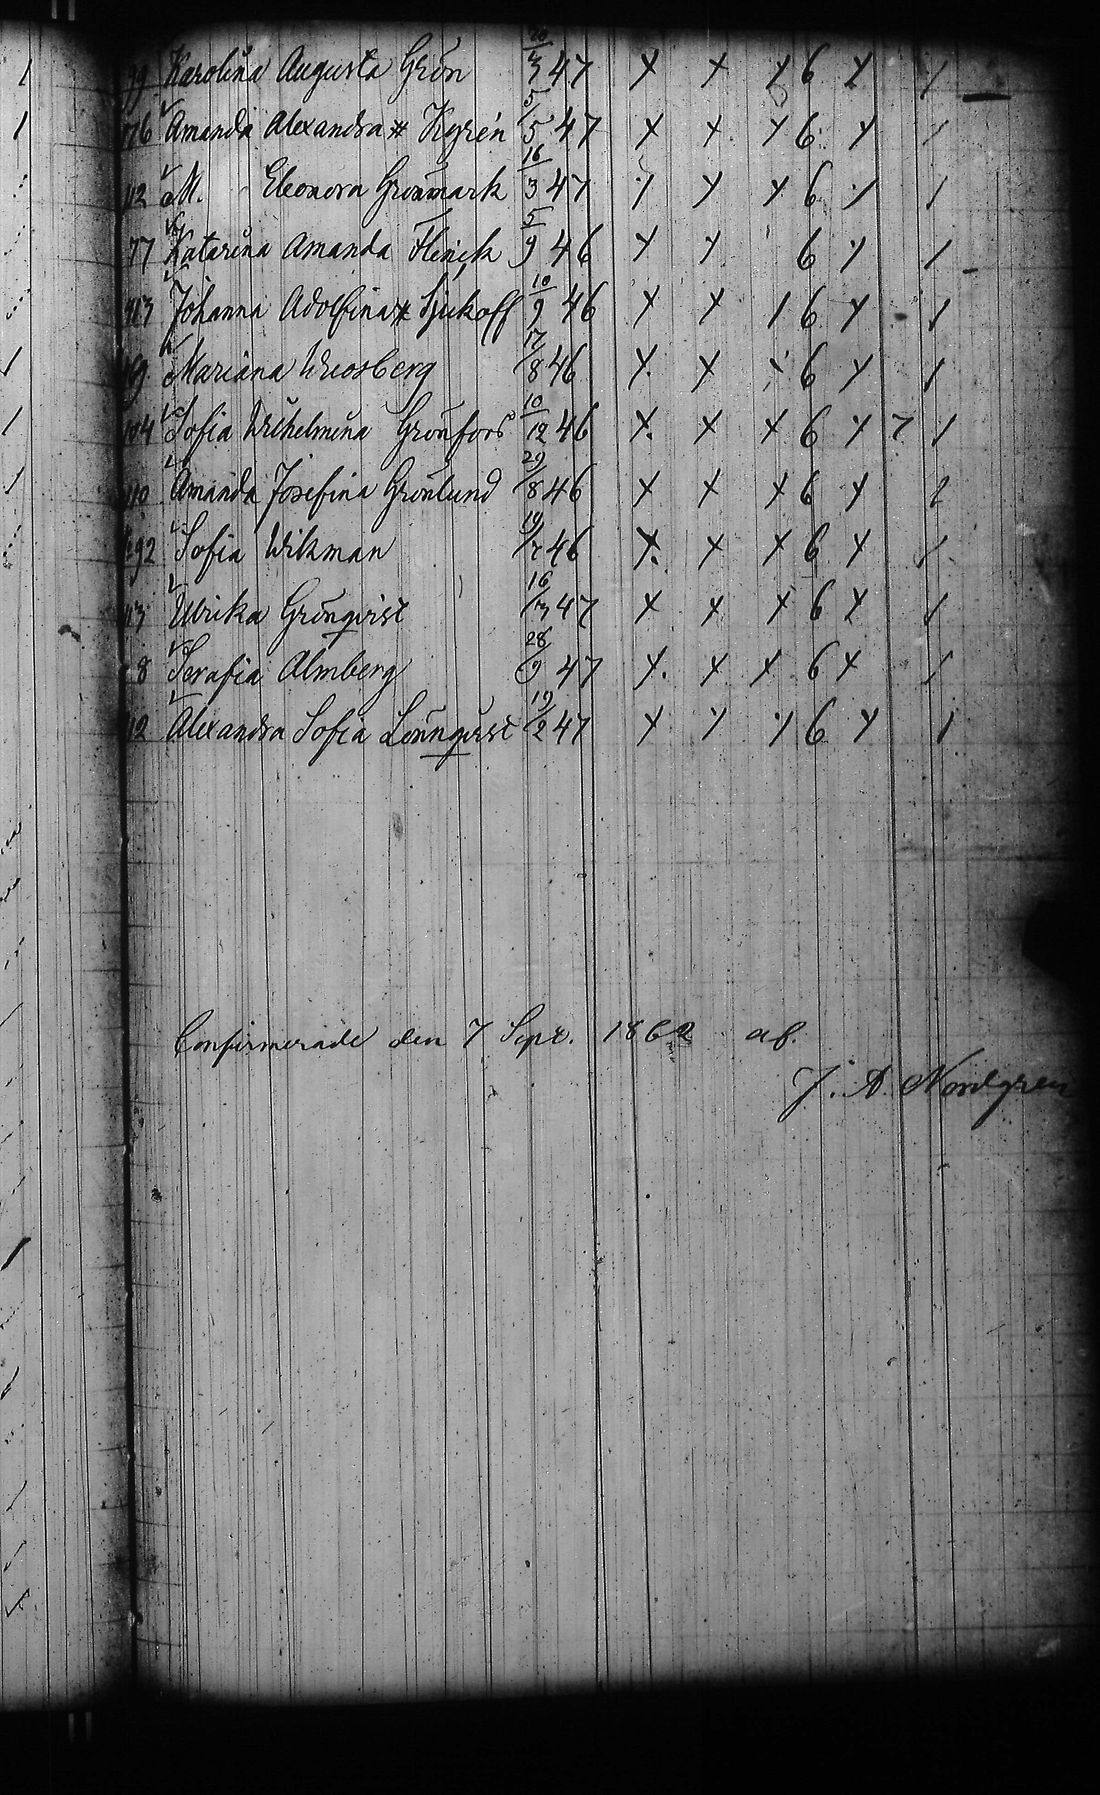 99 Karolina Augusta Grön 20/3 47 x x x 6 x /
76 Amanda Alexandra * Kyrén 5/5 47 x x x 6 x /
112 M. Eleonora Grönmark 16/3 47 x x x 6 x /
77 Katarina Amanda Flenck 5/9 46 x x 6 x /
113 Johanna Adolfina * Sjukoff 10/9 46 x x / 6 x /
Mariana 17/8 46 x x 6 x /
104 Sofia Wilhelmina Grönfors 10/12 46 x x x 6 x 7 /
110 Amanda Josefina Grönlund 29/8 46 x x x 6 x /
92 Sofia Wikman 19/7 46 x x x 6 x /
113 Ulrika Grönqvist 16/3 47 x x x 6 x /
8 Serafia Almberg 28/9 47 x x x 6 x /
112 Alexandra Sofia Lönnqvist 19/2 47 x x x 6 x /
Confirmerade den 7 Sept. 1862 af.
J. A. Nordgren